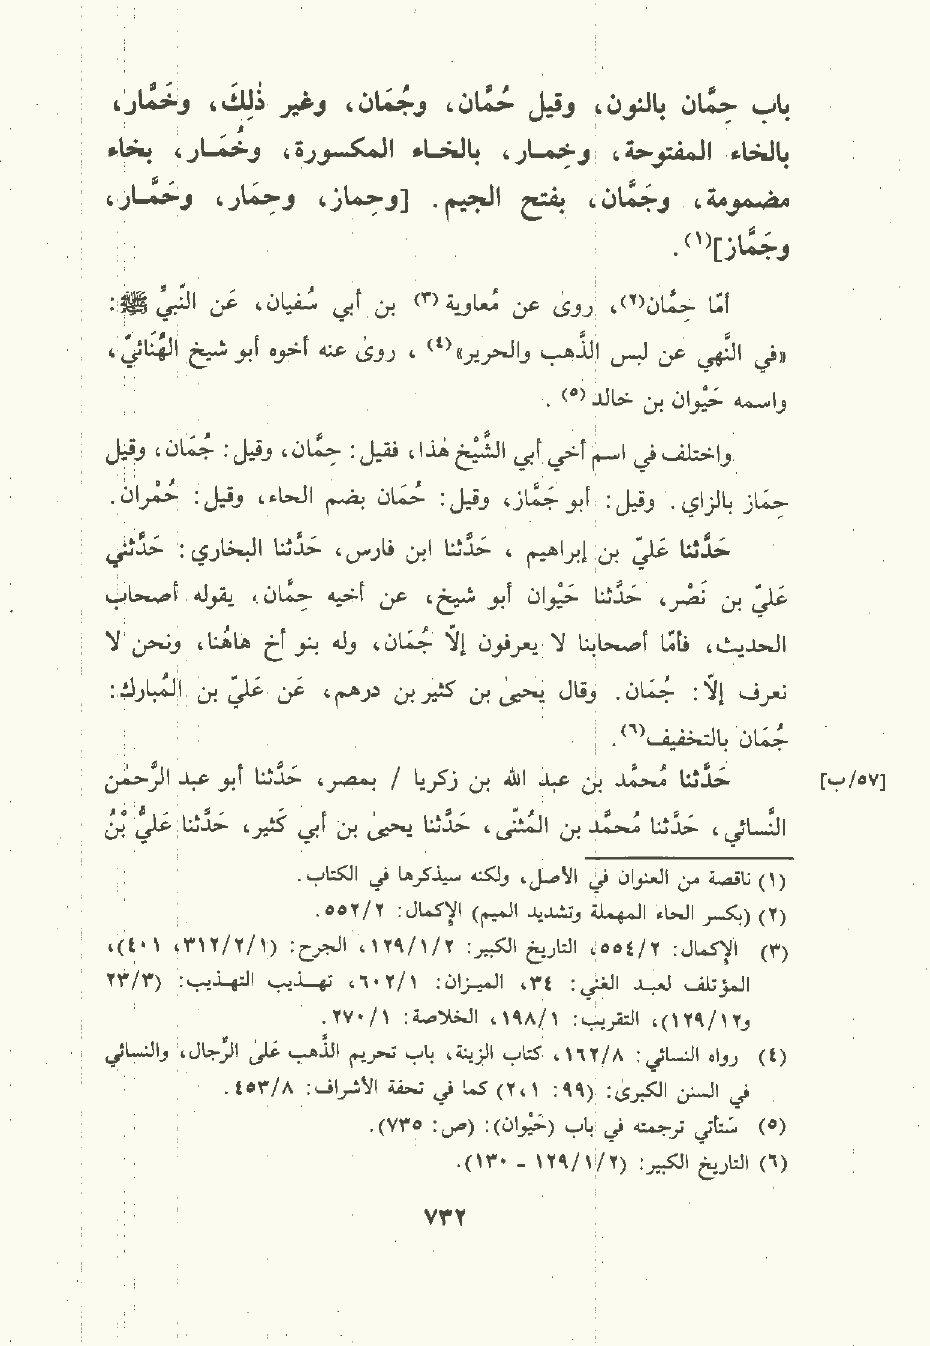 باب حِمَّان بالنون، وقيل حُمَّان، وجُمَان، وغير ذٰلِكَ، وخَمَّار،
بالخاء المفتوحة، وخمـار، بالخـاء المكسورة، وخُمَـار، بخاء
مضمومة، وجَمَّان، بفتح الجيم. [وحِماز، وحِمَار، وحَمَّـار،
وجَمَّاز](١).
أمّا حِمَّان(٢)، روىٰ عن مُعاوية(٣) بن أبي سُفيان، عَن النّبيِّ ﷺ:
«في النَّهي عن لبس الذَّهب والحرير»(٤)، روىٰ عنه أخوه أبو شيخ الهُنَائيّ،
واسمه حَيْوان بن خالد(٥).
واختلف في اسم أخي أبي الشَّيْخ هٰذا، فقيل: حِمَّان، وقيل: جُمَان، وقيل
حِمَاز بالزاي. وقيل: أبو جَمَّاز، وقيل: حُمَان بضم الحاء، وقيل: حُمْران.
حَدَّثنا عَليّ بن إبراهيم، حَدَّثنا ابن فارس، حَدَّثنا البخاري: حَدَّثني
عَليّ بن نَصْر، حَدَّثنا حَيْوان أبو شيخ، عن أخيه حِمَّان، يقوله أصحاب
الحديث، فأمّا أصحابنا لا يعرفون إلّا جُمَان، وله بنو أخ هاهُنا، ونحن لا
نعرف إلّا: جُمَان. وقال يحيىٰ بن كثير بن درهم، عَن عَليّ بن المُبارك:
جُمَان بالتخفيف(٦).
[٥٧/ب] حَدَّثنا مُحمَّد بن عبد الله بن زكريا / بمصر، حَدَّثنا أبو عبد الرَّحمٰن
النَّسائي، حَدَّثنا مُحمَّد بن المُثنّى، حَدَّثنا يحيىٰ بن أبي كَثير، حَدَّثنا عَليُّ بْنُ
(١) ناقصة من العنوان في الأصل، ولكنه سيذكرها في الكتاب.
(٢) (بكسر الحاء المهملة وتشديد الميم) الإكمال: ٥٥٢/٢.
(٣) الإكمال: ٥٥٤/٢، التاريخ الكبير: ١٢٩/١/٢، الجرح: (٣١٢/٢/١، ٤٠١)،
المؤتلف لعبـد الغني: ٣٤، الميـزان: ٦٠٢/١، تهـذيب التهـذيب: (٢٣/٣
و١٢٩/١٢)، التقريب: ١٩٨/١، الخلاصة: ٢٧٠/١.
(٤) رواه النسائي: ١٦٢/٨، كتاب الزينة، باب تحريم الذَّهب عَلىٰ الرِّجال، والنسائي
في السنن الكبرىٰ: (٩٩: ٢،١) كما في تحفة الأشراف: ٤٥٣/٨.
(٥) سَتأتي ترجمته في باب (خَيْوان): (ص: ٧٣٥).
(٦) التاريخ الكبير: (١٢٩/١/٢ - ١٣٠).
٧٣٢